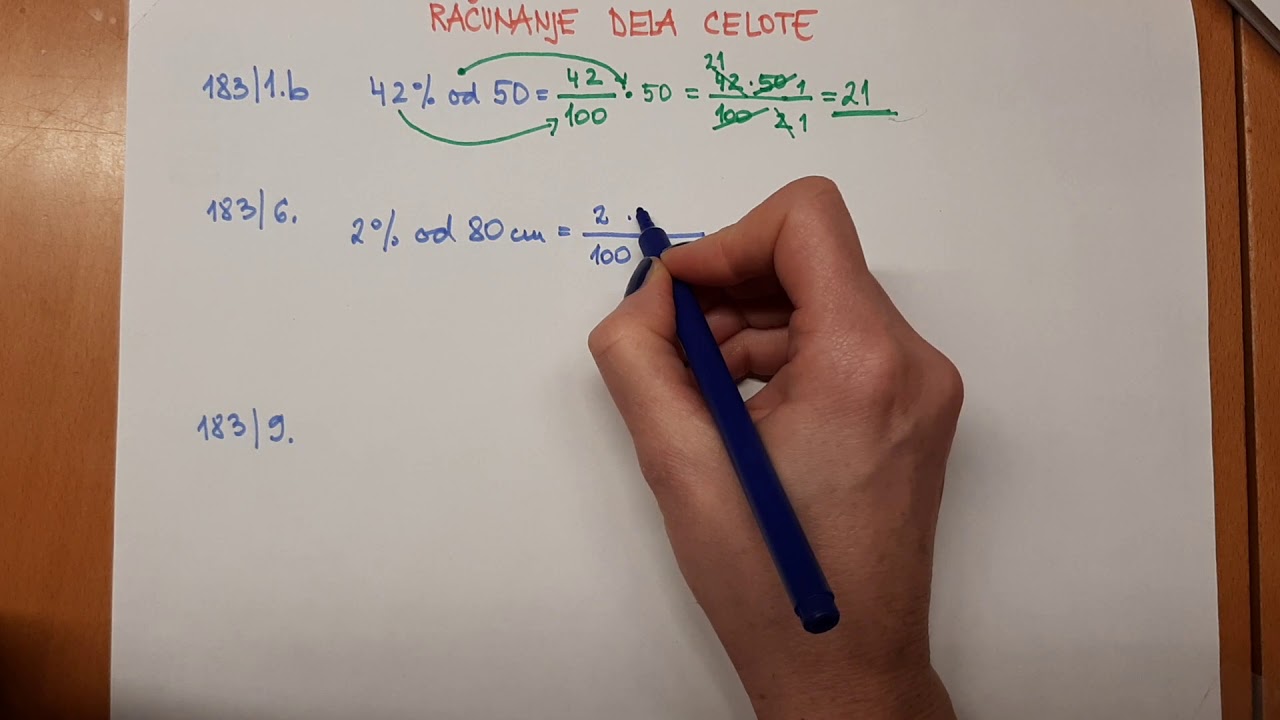 RAČUNANJE DELA CELOTE
183/1.b 42% od 50 = 42/100 · 50 = 42 · 50/100 = 21
21 1
2 1
183/6. 2% od 80 cm = 2 ·/100
183/9.